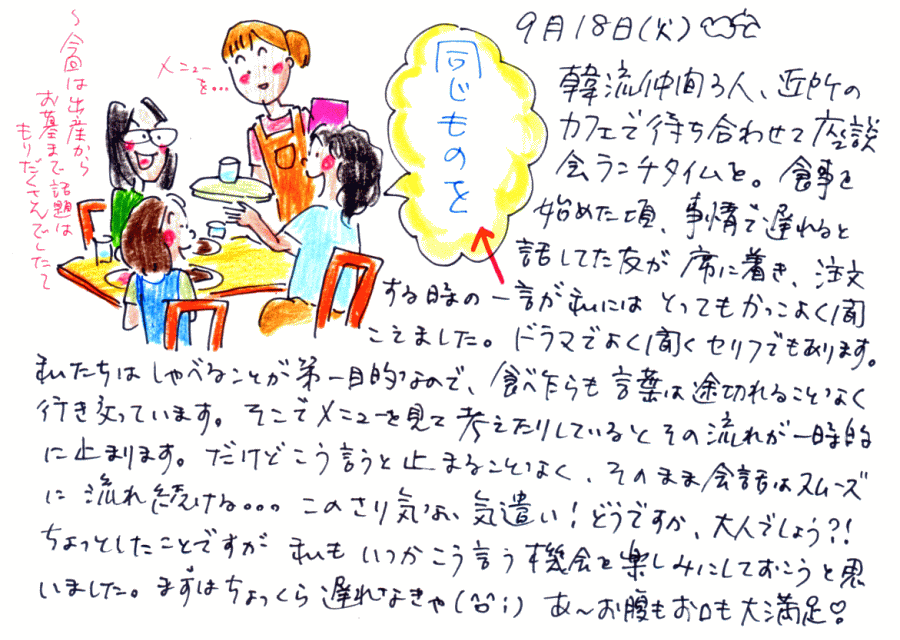 9月18日(火)
韓流仲間3人、近所の
カフェで待ち合わせて座談
会ランチタイムを。食事を
始めた頃、事情で遅れると
話してた友が席に着き、注文
する時の一言が私にはとってもかっこよく聞
こえました。ドラマでよく聞くセリフでもあります。
私たちはしゃべることが第一目的なので、食べ乍らも言葉は途切れることなく
行き交っています。そこでメニューを見て考えたりしているとその流れが一時的
に止まります。だけどこう言うと止まることなく、そのまま会話はスムーズ
に流れ続ける。。。このさり気ない気遣い!どうですか、大人でしょう?!
ちょっとしたことですが私もいつかこう言う機会を楽しみにしておこうと思
いました。まずはちょっくら遅れなきゃ(^o^;) あ〜お腹もお口も大満足♡
同じものを
メニュー
を...
〜今回は出産から
お墓まで話題は
もりだくさんでしたて